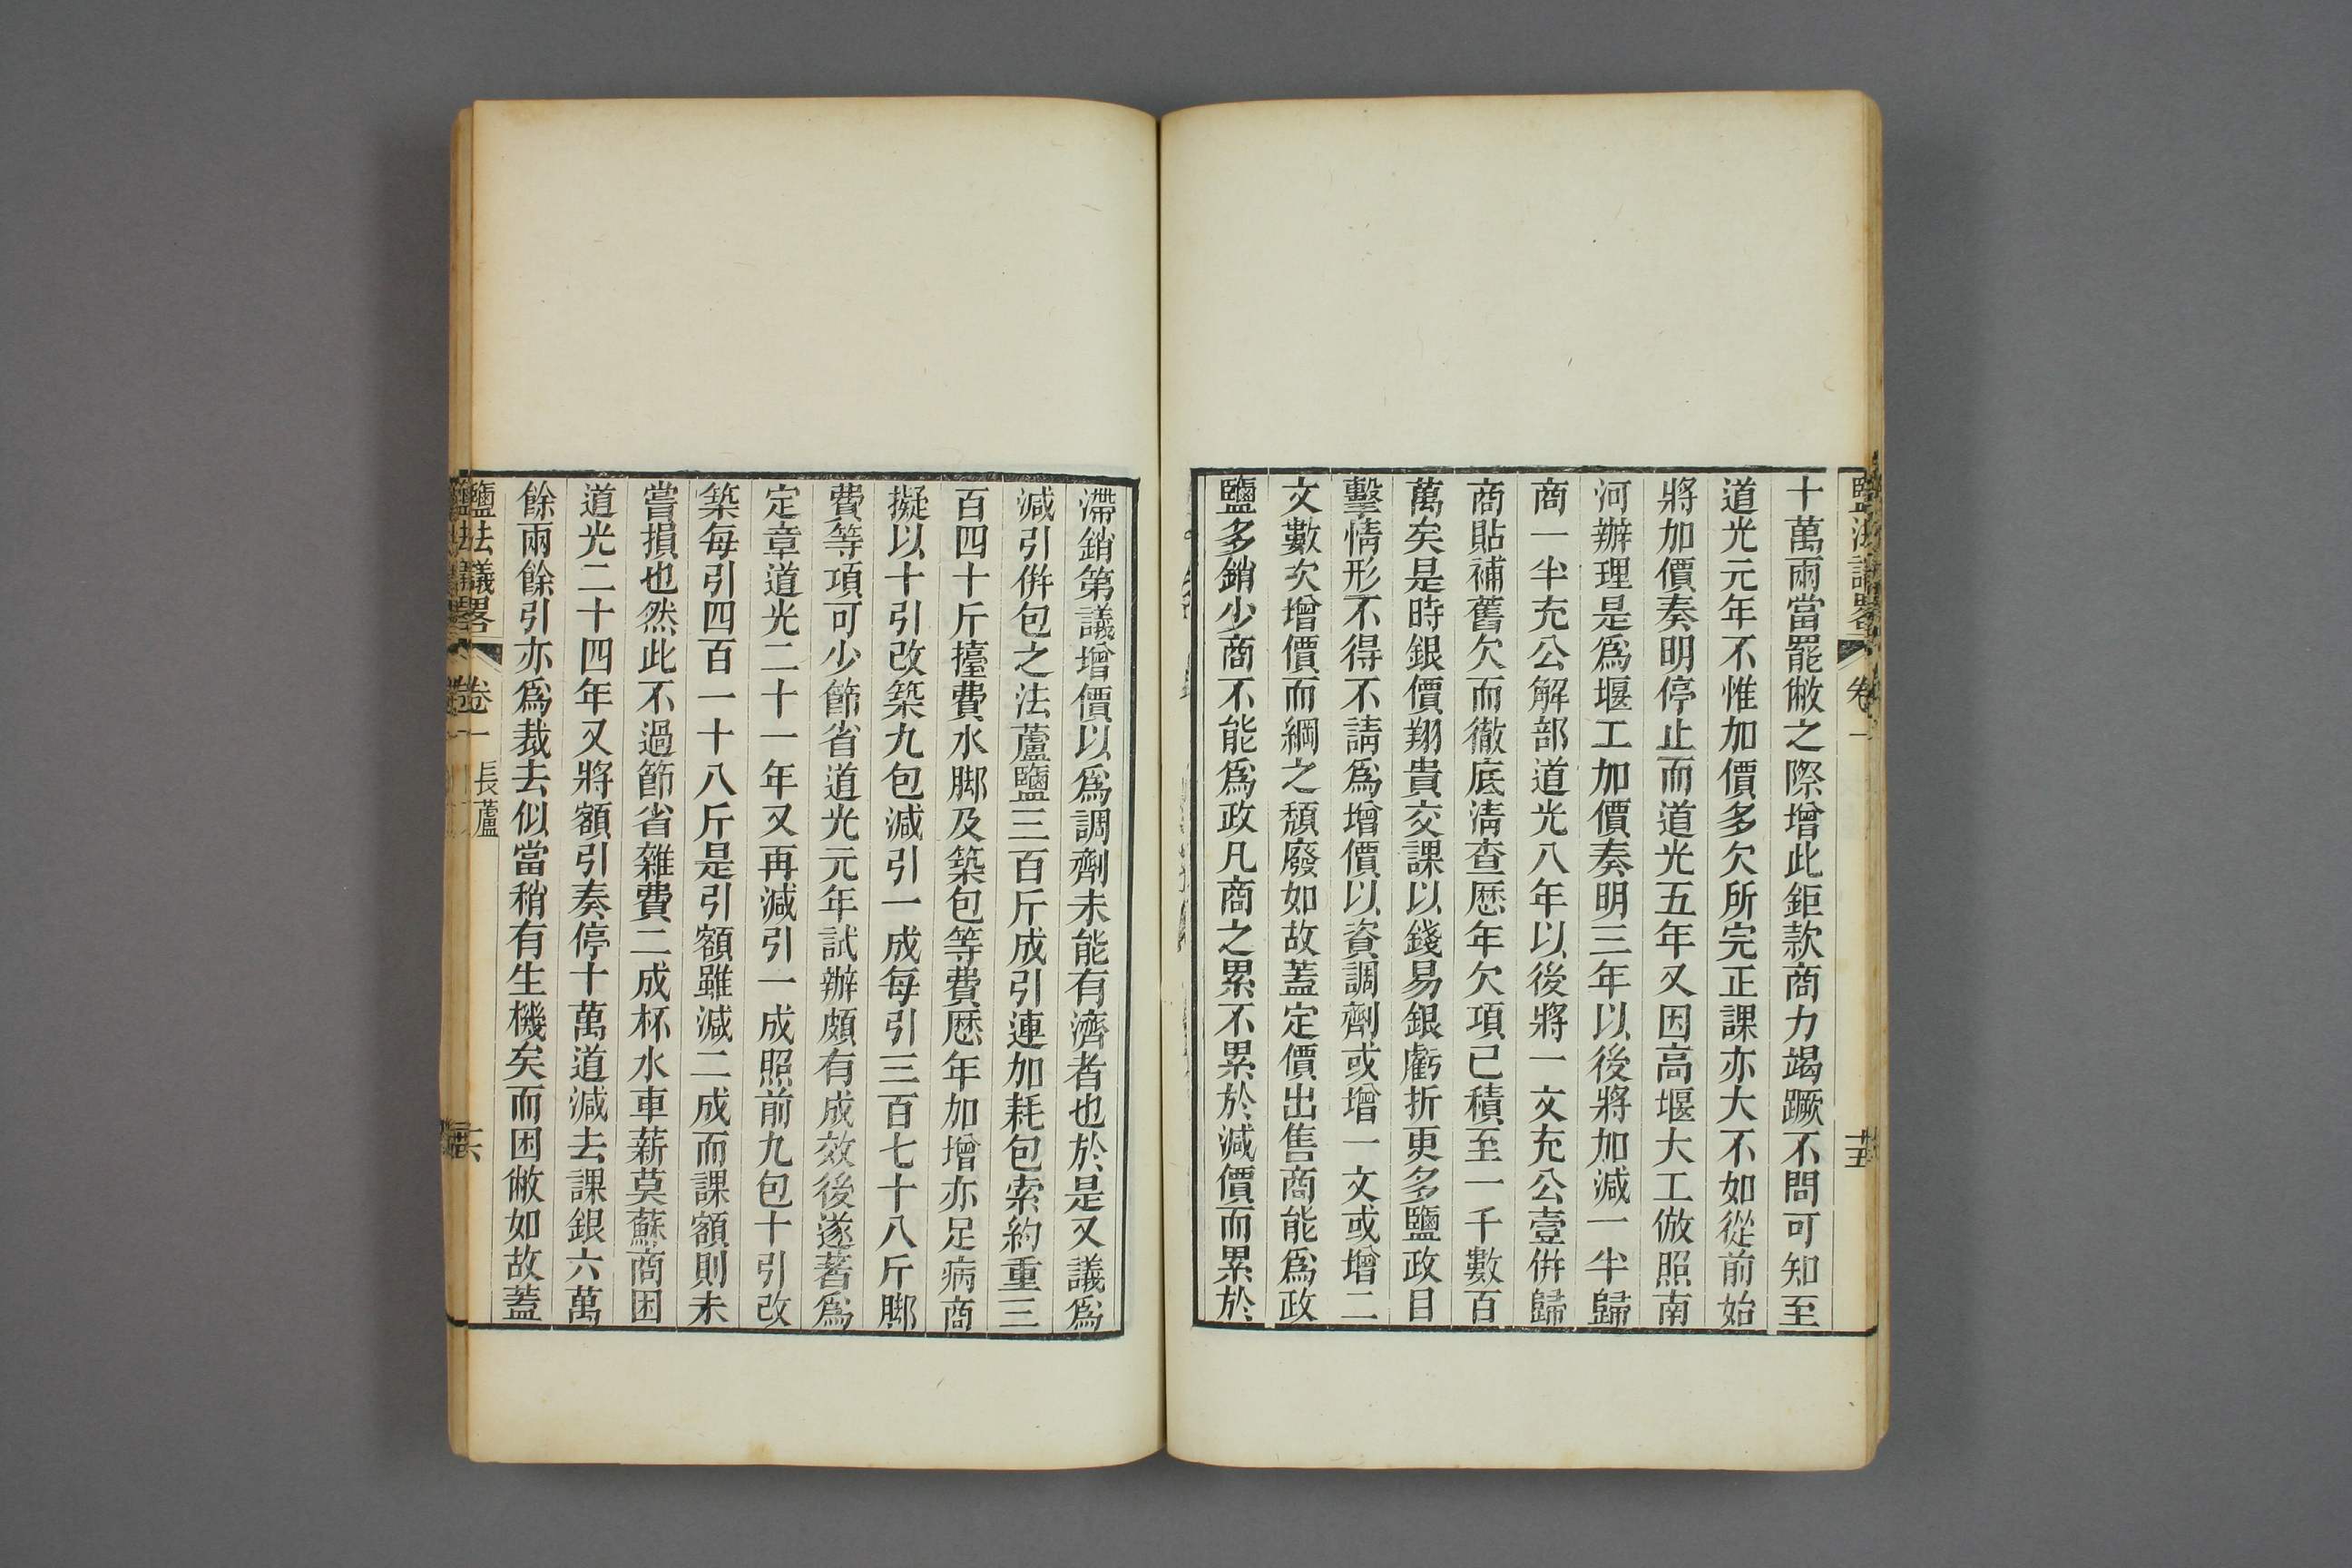 鹽法議畧 卷一 十五
十萬兩當罷敝之際增此鉅款商力竭蹶不問可知至
道光元年不惟加價多欠所完正課亦大不如從前始
將加價奏明停止而道光五年又因高堰大工倣照南
河辦理是爲堰工加價奏明三年以後將加減一半歸
商一半充公解部道光八年以後將一文充公壹併歸
商貼補舊欠而徹底清查歷年欠項已積至一千數百
萬矣是時銀價翔貴交課以錢易銀虧折更多鹽政目
擊情形不得不請爲增價以資調劑或增一文或增二
文數次增價而綱之頹廢如故蓋定價出售商能爲政
鹽多銷少商不能爲政凡商之累不累於減價而累於
滯銷第議增價以爲調劑未能有濟者也於是又議爲
減引併包之法蘆鹽三百斤成引連加耗包索約重三
百四十斤擡費水脚及築包等費歷年加增亦足病商
擬以十引改築九包減引一成每引三百七十八斤脚
費等項可少節省道光元年試辦頗有成效後遂著爲
定章道光二十一年又再減引一成照前九包十引改
築每引四百一十八斤是引額雖減二成而課額則未
嘗損也然此不過節省雜費二成杯水車薪莫蘇商困
道光二十四年又將額引奏停十萬道減去課銀六萬
餘兩餘引亦爲裁去似當稍有生機矣而困敝如故蓋
鹽法議畧 卷一 長蘆 十六